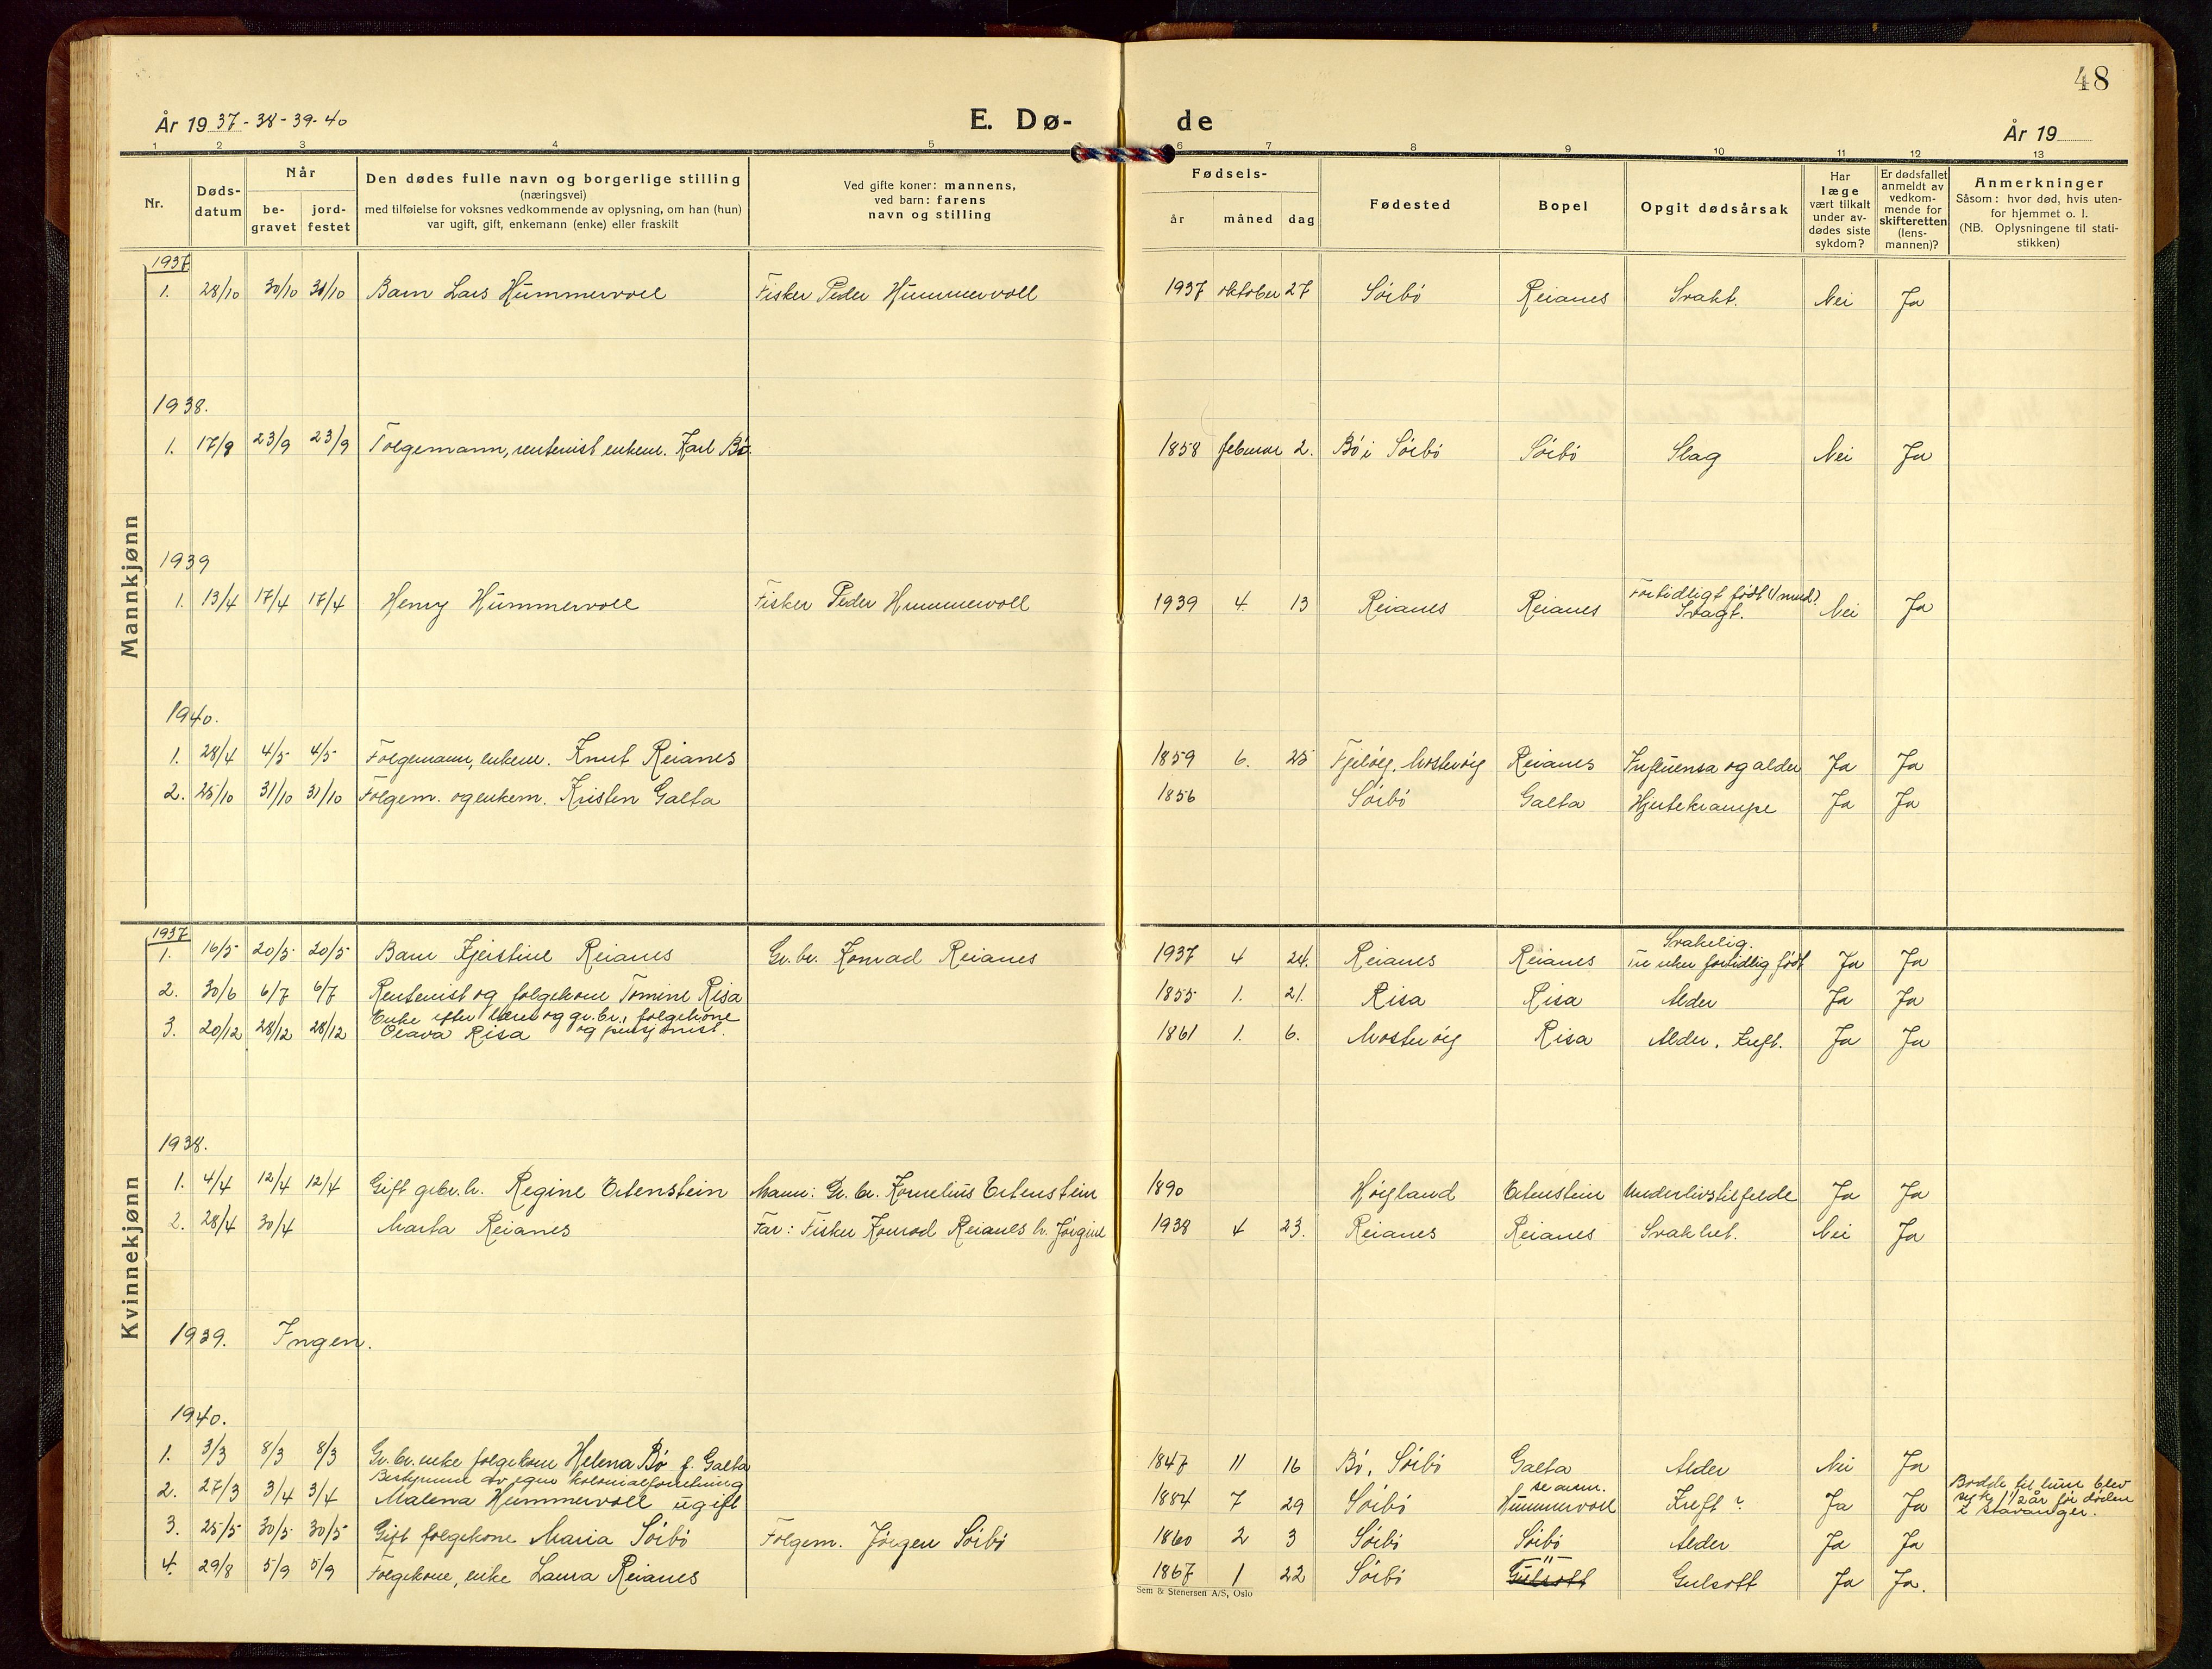 48
År 1937-38-39-40
E. Dø-
de
År 19
1 2 3 4 5 6 7 8 9 10 11 12 13
Nr.
Døds-
datum
Når
be-
gravet
jord-
festet
Den dødes fulle navn og borgerlige stilling
(næringsvei)
med tilføielse for voksnes vedkommende av oplysning, om han (hun)
var ugift, gift, enkemann (enke) eller fraskilt
Ved gifte koner: mannens,
ved barn: farens
navn og stilling
Fødsels-
år måned dag
Fødested
Bopel
Opgit dødsårsak
Har
læge
vært tilkalt
under av-
dødes siste
sykdom?
Er dødsfallet
anmeldt av
vedkom-
mende for
skifteretten
(lens-
mannen)?
Anmerkninger
Såsom: hvor død, hvis uten-
for hjemmet o. l.
(NB. Oplysningene til stati-
stikken)
Mannkjønn
1937
1. 28/10 30/10 30/10 Barn Lars Hummervoll Fisker Peder Hummervoll 1937 oktober 27 Sörbö Reianes Svakt. Nei Ja
1938.
1. 17/9 23/9 23/9 Folgemann, rentenist enkem. Karl Bö. 1858 februar 2. Bö i Sörbö Sörbö Slag Nei Ja
1939
1. 13/4 17/4 17/4 Henry Hummervoll Fisker Peder Hummervoll 1939 4. 13 Reianes Reianes Fortidligt födt Svagt. Nei Ja
1940.
1. 28/4 4/5 4/5 Folgemann, enkem. Knut Reianes 1859 6. 25 Fjelöig, Mosteröig Reianes Influensa og alder Ja Ja
2. 25/10 31/10 31/10 Folgem. og enkem. Kristen Galta 1856 Sörbö Galta Hjertekrampe Ja Ja
Kvinnekjønn
1937
1. 16/5 20/5 20/5 Barn Kjerstine Reianes Gr. br. Konrad Reianes 1937 4 24. Reianes Reianes Svakelig. uker fortidlig födt Ja Ja
2. 30/6 6/7 6/7 Rentenist og folgekone Tomine Risa 1855 1. 21. Risa Risa Alder Ja Ja
3. 20/12 28/12 28/12 Enke efter lærer og gr. br., folgekone
Olava Risa og pensjonist. 1861 1. 6. Mosteröig Risa Alder. Kreft. Ja Ja
1938.
1. 4/4 12/4 12/4 Gift grbr.h. Regine Ertenstein Mann: Gr. br. Kornelius Ertenstein 1890 Höigland Ertenstein Underlivstilfelde Ja Ja
2. 28/4 30/4 Marta Reianes Far: Fisker Konrad Reianes h. Jörgine 1938 4 23. Reianes Reianes Svakhet. Nei Ja
1939. Ingen.
1940.
1. 3/3 8/3 8/3 Gr. br. enke folgekone Helena Bö f. Galta 1847 11 16 Bö, Sörbö Galta Alder Nei Ja
2. 27/3 3/4 3/4 Bestyrerinne av egen kolonialforretning
Malena Hummervoll ugift 1884 7 29 Sörbö se anm. Hummervoll Kreft? Ja Ja Bodde til hun blev
syk 1 1/2 år för döden
i Stavanger.
3. 25/5 30/5 30/5 Gift folgekone Maria Sörbö Folgem. Jörgen Sörbö 1860 2 3 Sörbö Sörbö Alder Ja Ja
4. 29/8 5/9 5/9 Folgekone, enke Laura Reianes 1867 1 22 Sörbö —"— Gulsott Gulsott Ja Ja.
Sem & Stenersen A/S, Oslo